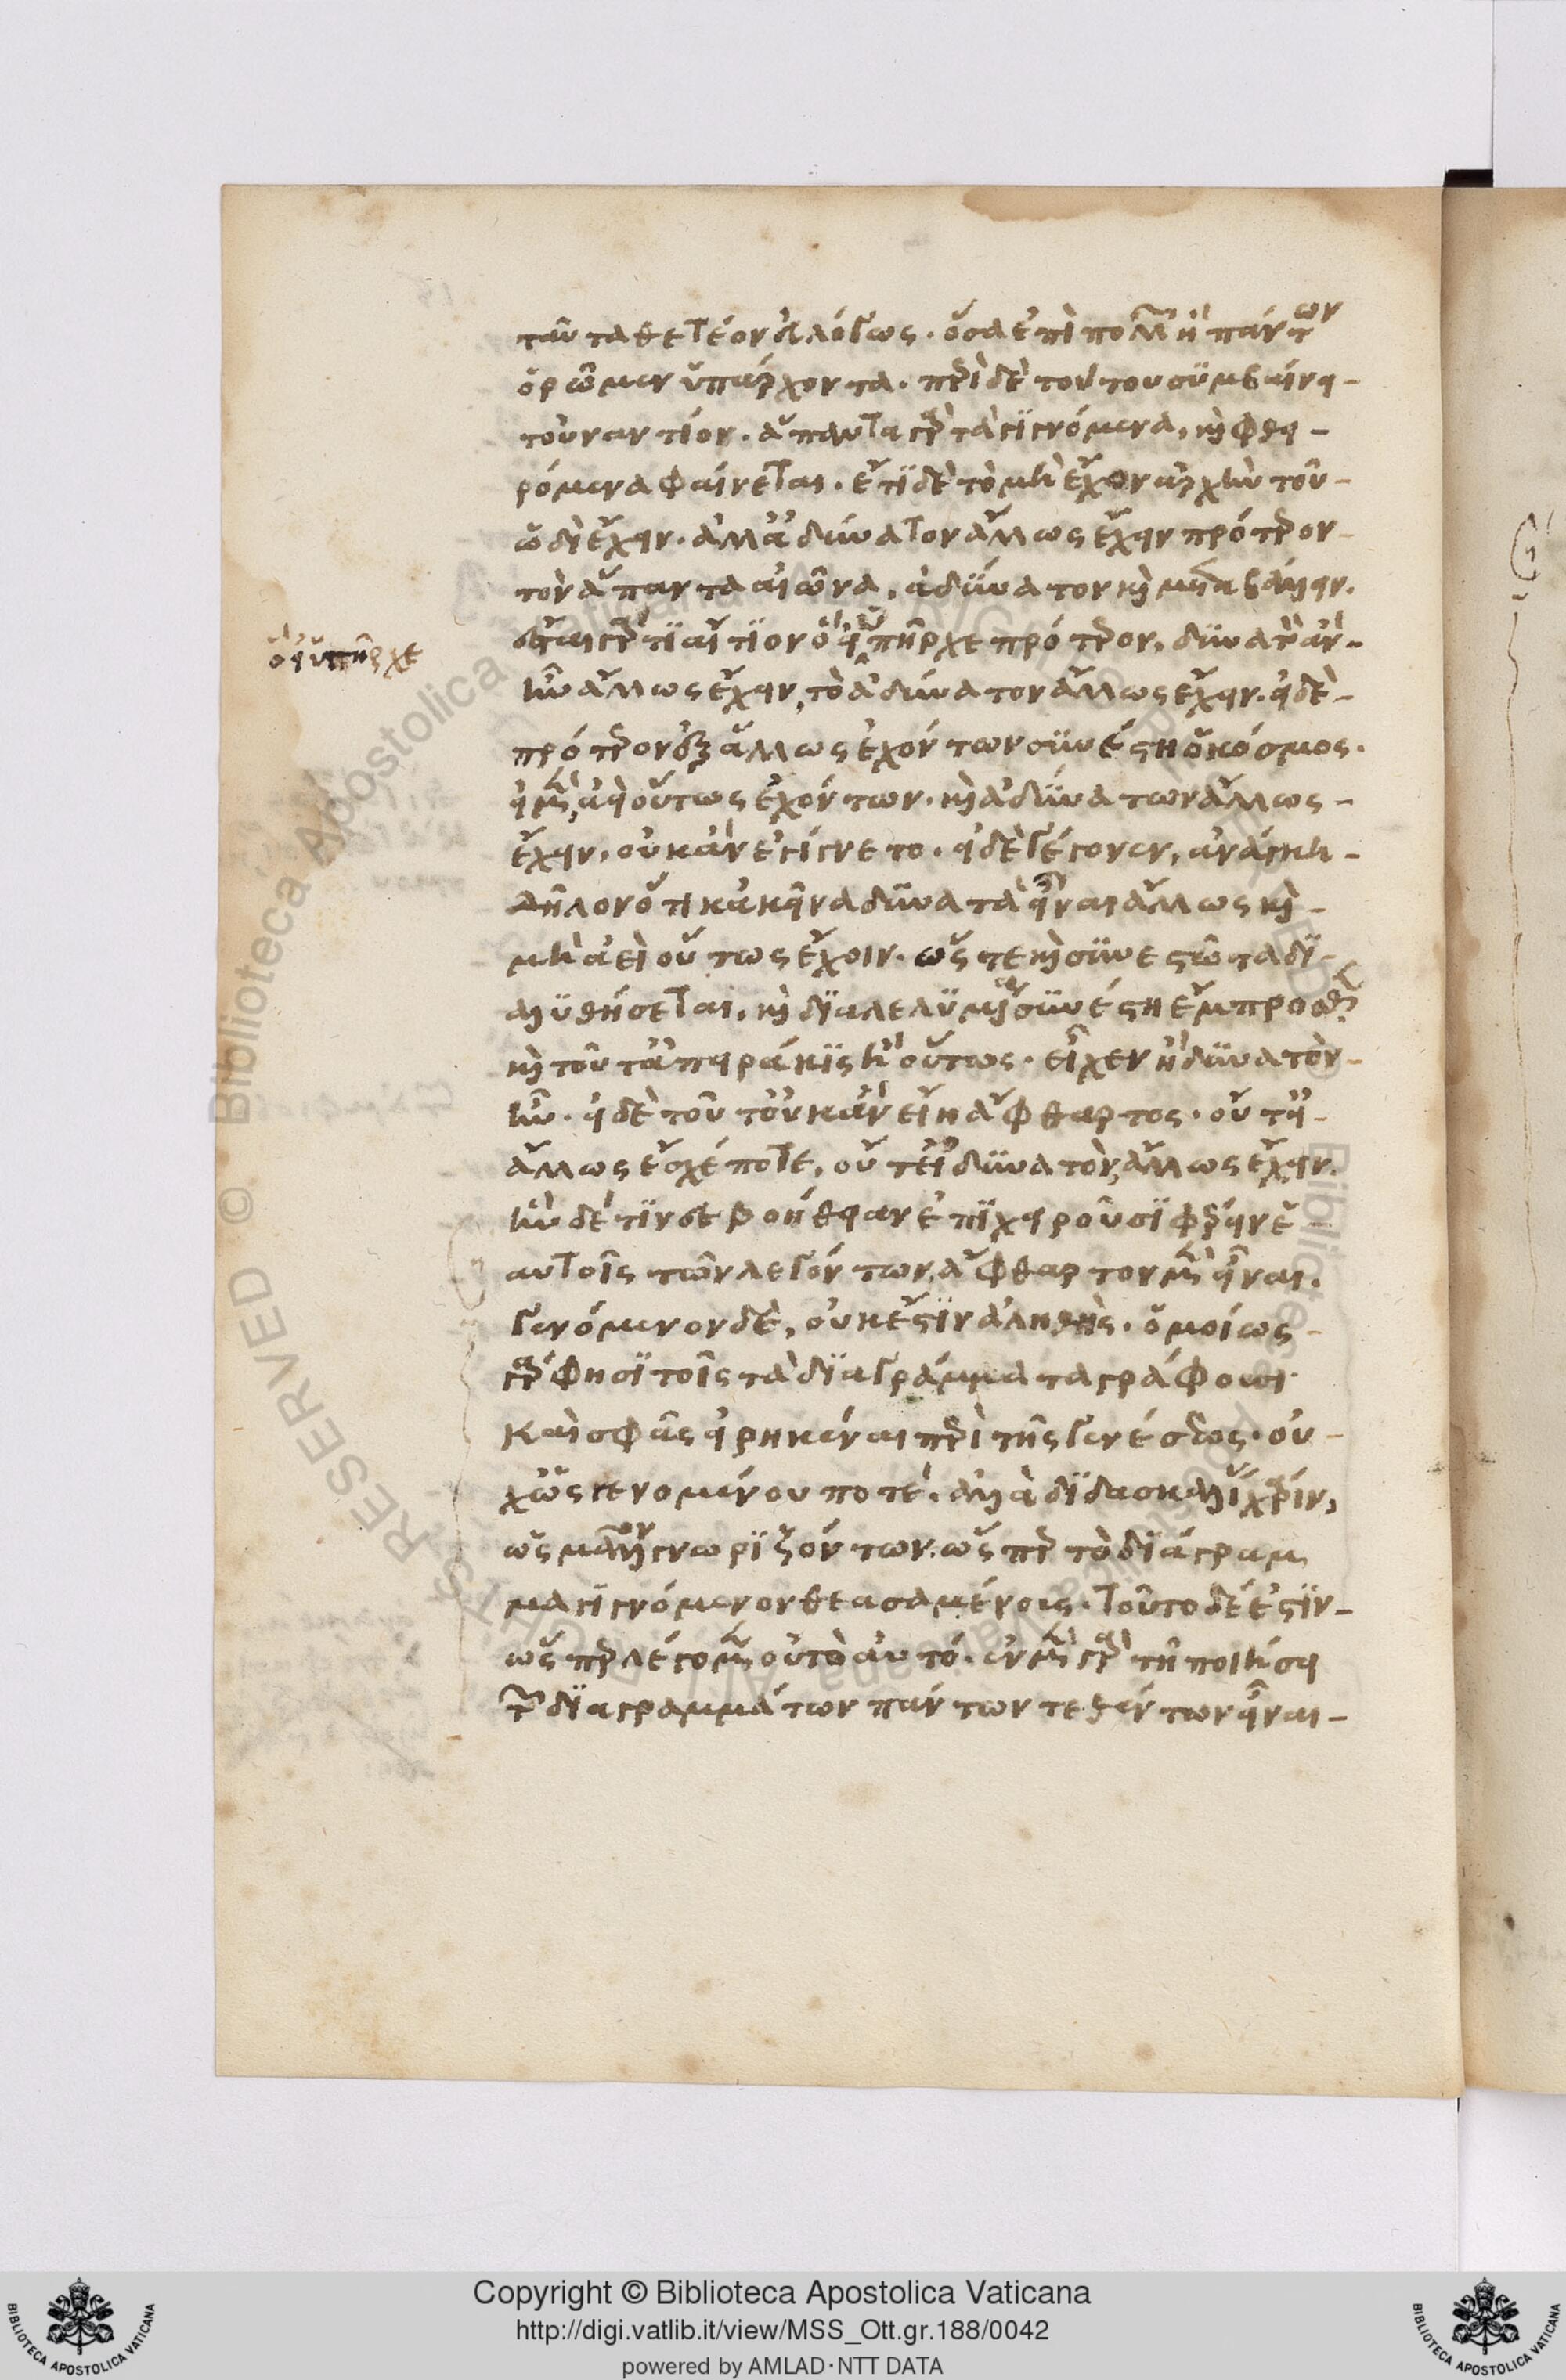 ταῦτα θετέον εὐλόγως. ὅσα ἐπὶ πολλῶν ἢ πάντων
ὁρῶμεν ὑπάρχοντα. περὶ δὲ τούτου συμβαίνει
τοὐναντίον. ἅπαντα γὰρ τὰ γιγνόμενα, καὶ φθει
ρόμενα φαίνεται. ἔτι δὲ τὸ μὴ ἔχον ἀρχὴν τοῦ
ὡδὶ ἔχειν. ἀλλ' ἀδύνατον ἄλλως ἔχειν πρότερον
τὸν ἅπαντα αἰῶνα, ἀδύνατον καὶ μεταβάλλειν.
ἔσται γάρ τι αἴτιον ὃ εἰ ὑπῆρχε πρότερον, δυνατὸν ἂν
ὃ εἰ ὑπῆρχε
ἦν ἄλλως ἔχειν, τὸ ἀδύνατον ἄλλως ἔχειν. εἰ δὲ
πρότερον ἐξ ἄλλως ἐχόντων συνέστη ὁ κόσμος.
εἰ μὲν ἀεὶ οὕτως ἐχόντων. καὶ ἀδυνάτων ἄλλως
ἔχειν, οὐκ ἂν ἐγίγνετο. εἰ δὲ γέγονεν, ἀνάγκη
δῆλον ὅτι κἀκεῖνα δυνατὰ εἶναι ἄλλως καὶ
μὴ ἀεὶ οὕτως ἔχειν. ὥστε καὶ συνεστῶτα δι
αλυθήσεται, καὶ διαλελυμένα συνέστη ἔμπροσθεν
καὶ τοῦτ' ἀπειράκις ἢ οὕτως. εἶχεν ἢ δυνατὸν
ἦν. εἰ δὲ τοῦτ' οὐκ ἂν εἴη ἄφθαρτος. οὔτ' εἰ
ἄλλως ἔσχέ ποτε, οὔτ' εἰ δυνατὸν, ἄλλως ἔχειν.
ἣν δέ τινες βοήθειαν ἐπιχειροῦσι φέρειν ἑ
αυτοῖς τῶν λεγόντων, ἄφθαρτον μὲν εἶναι.
γενόμενον δέ, οὐκ ἔστιν ἀληθής. ὁμοίως
γάρ φησι τοῖς τὰ διαγράμματα γράφουσι
καὶ σφᾶς εἰρηκέναι περὶ τῆς γενέσεως. οὐ
χ' ὡς γενομένου ποτέ. ἀλλὰ διδασκαλίας χάριν,
ὡς μᾶλλον γνωριζόντων. ὥσπερ τὸ διάγραμ
μα γιγνόμενον θεασαμένοις. τοῦτο δέ ἐστιν
ὥσπερ λέγομεν οὐ τὸ αὐτό. ἐν μὲν γὰρ τῇ ποιήσει
τῶν διαγραμμάτων πάντων τεθέντων εἶναι
Copyright © Biblioteca Apostolica Vaticana
http://digi.vatlib.it/view/MSS_Ott.gr.188/0042
powered by AMLAD·NTT DATA